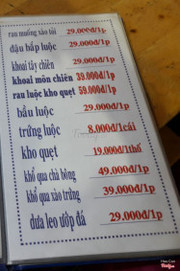 rau muống xào tỏi 29.000đ/1p
đậu bắp luộc 29.000đ/1p
khoai tây chiên 29.000đ/1p
khoai môn chiên 39.000đ/1p
rau luộc kho quẹt 59.000đ/1p
bầu luộc 29.000đ/1p
trứng luộc 8.000đ/1cái
kho quẹt 19.000đ/1thố
khổ qua chà bông 49.000đ/1p
khổ qua xào trứng 39.000đ/1p
dưa leo ướp đá 29.000đ/1p